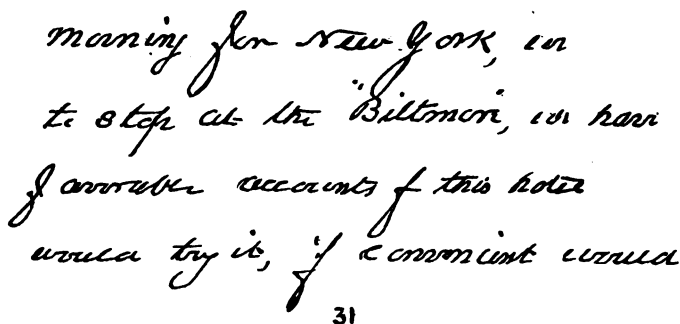 morning for New York, we
to stop at the "Biltmore", we have
favorable accounts of this hotel
would try it, if convenient would
31